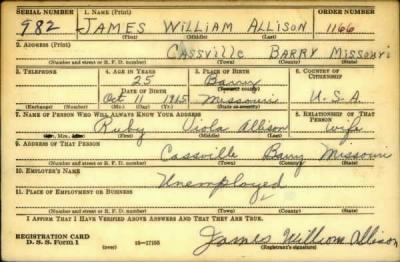 SERIAL NUMBER 1. NAME (Print) ORDER NUMBER
982 JAMES WILLIAM ALLISON 1166
(First) (Middle) (Last)
2. ADDRESS (Print)
CASSVILLE BARRY MISSOURI
(Number and street or R. F. D. number) (Town) (County) (State)
3. TELEPHONE 4. AGE IN YEARS 5. PLACE OF BIRTH 6. COUNTRY OF CITIZENSHIP
25 Barry
DATE OF BIRTH (Town or county)
Oct 11 1915 Missouri U.S.A.
(Exchange) (Number) (Mo.) (Day) (Yr.) (State or country)
7. NAME OF PERSON WHO WILL ALWAYS KNOW YOUR ADDRESS 8. RELATIONSHIP OF THAT PERSON
Ruby Viola Allison Wife
Mr., Mrs., Miss (First) (Middle) (Last)
9. ADDRESS OF THAT PERSON
Cassville Barry Missouri
(Number and street or R. F. D. number) (Town) (County) (State)
10. EMPLOYER'S NAME
Unemployed
11. PLACE OF EMPLOYMENT OR BUSINESS
(Number and street or R. F. D. number) (Town) (County) (State)
I AFFIRM THAT I HAVE VERIFIED ABOVE ANSWERS AND THAT THEY ARE TRUE.
REGISTRATION CARD
D. S. S. Form 1 (over) 16—17105 James William Allison
(Registrant's signature)